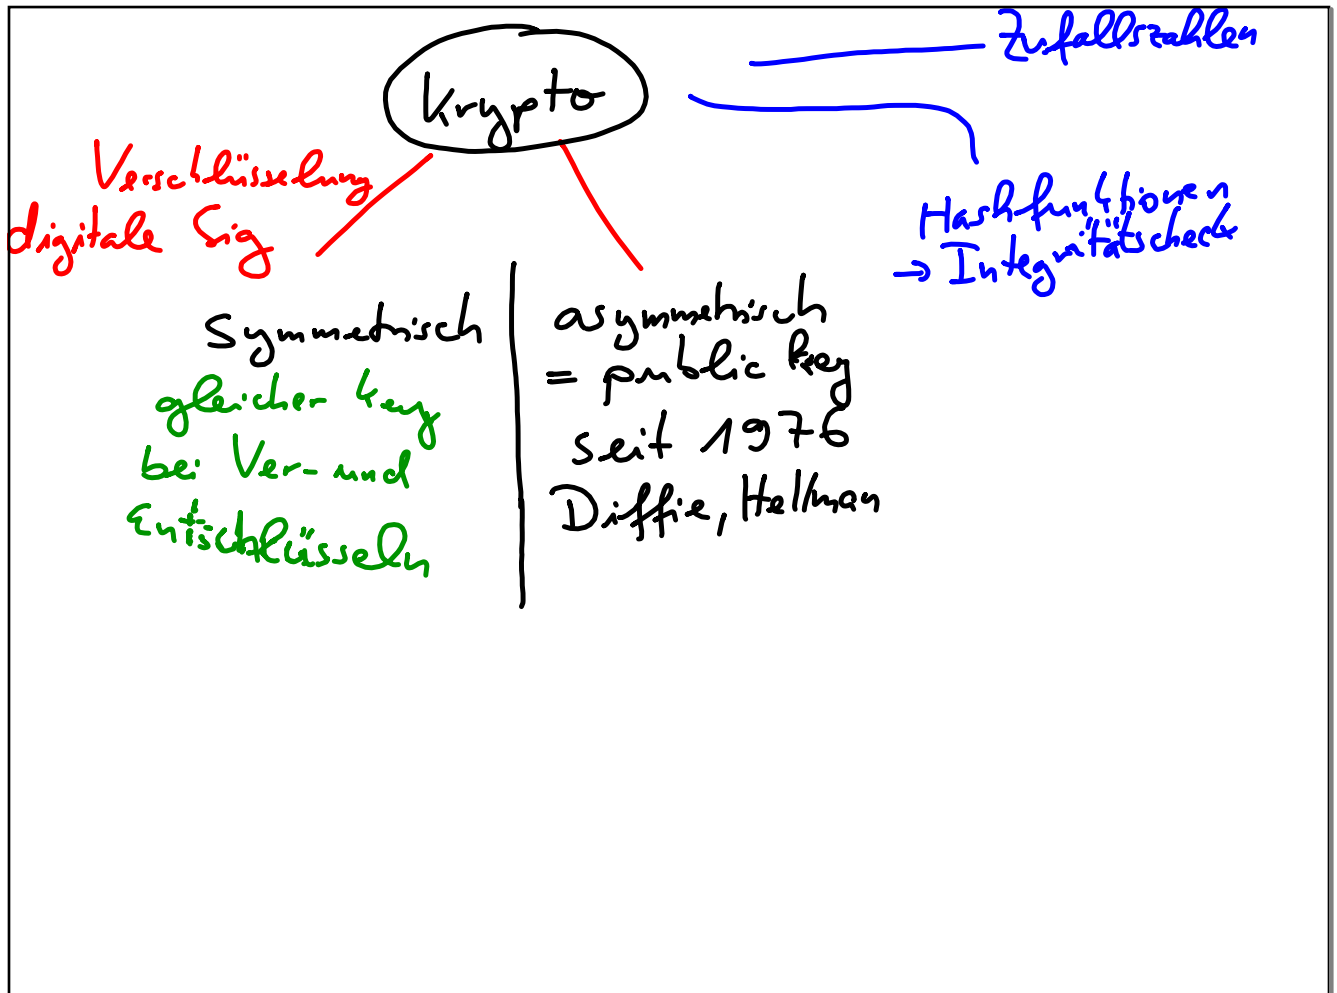 Krypto
Zufallszahlen
Hashfunktionen
→ Integritätscheck
Verschlüsselung
digitale Sig
Symmetrisch
gleicher key
bei Ver- und
Entschlüsseln
asymmetrisch
= public key
seit 1976
Diffie, Hellman